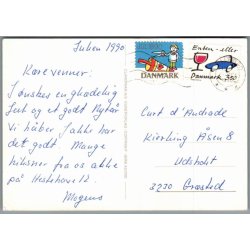 Julen 1990
Kære venner.
I ønskes en glædelig
Jul og et godt Nytår
Vi håber I alle har
det godt. Mange
hilsner fra os alle
på Hestehave 12
Mogens
DANMARK
Enten - eller
Danmark 3.50
Curt d'Andrade
Kierling Åsen 8
Udsholt
3230 Græsted